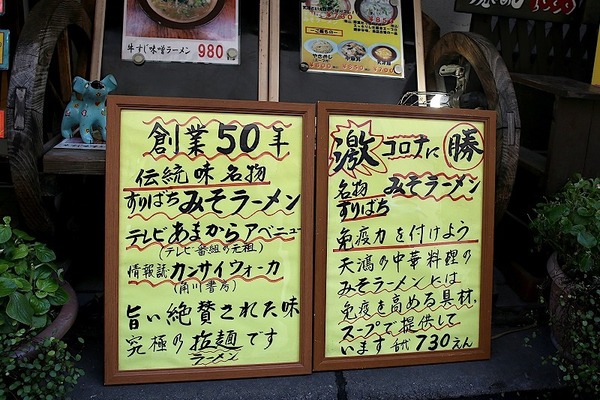 牛すじ味噌ラーメン 980
創業50年
伝統味名物
すりばちみそラーメン
テレビあまからアベニュー
(テレビ番組の元祖)
情報誌カンサイウォーカ
(角川書店)
旨い絶賛された味
究極の拉麺です
ラーメン
激コロナに勝
名物みそラーメン
すりばち
免疫力を付けよう
天鴻の中華料理の
みそラーメンには
免疫を高める具材、
スープで提供して
います 730えん